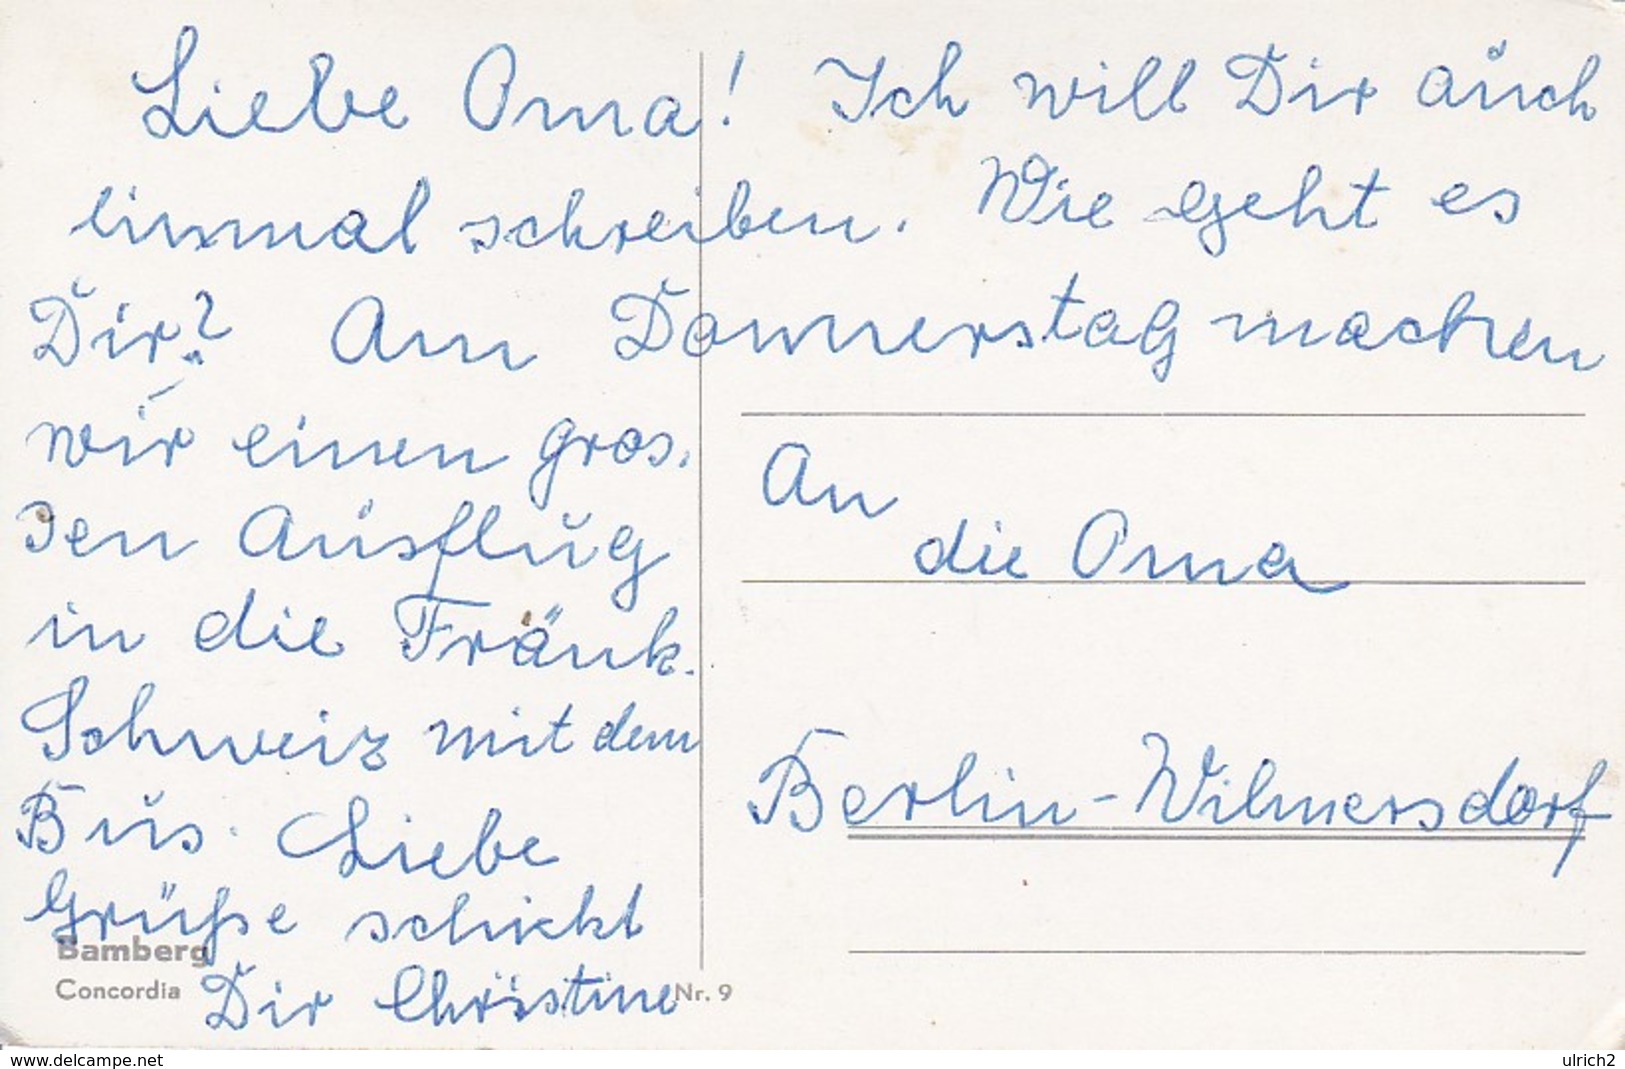 Liebe Oma! Ich will Dir auch
einmal schreiben. Wie geht es
Dir? Am Donnerstag machen
wir einen gros.
sen Ausflug
in die Fränk.
Schweiz mit dem
Bus. Liebe
Grüße schickt
Dir Christine
An
die Oma
Berlin-Wilmersdorf
Bamberg
Concordia
Nr. 9
www.delcampe.net
ulrich2